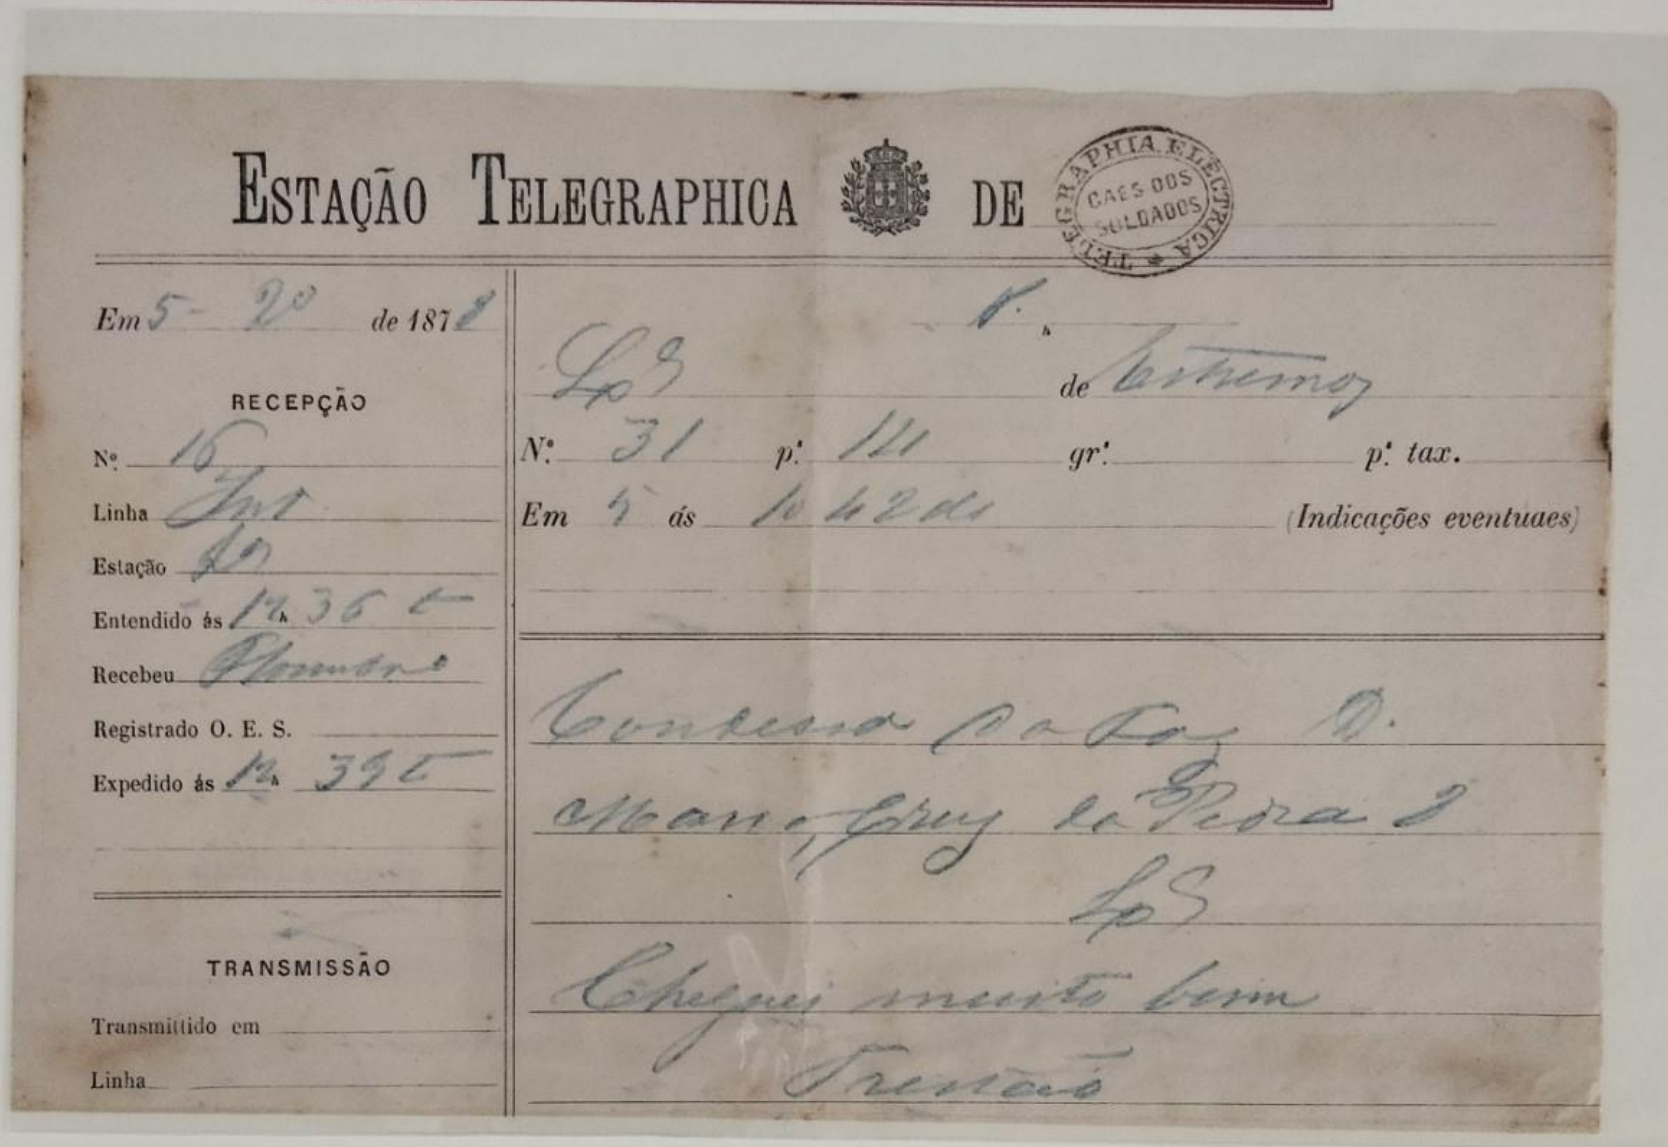 ESTAÇÃO TELEGRAPHICA DE
TELEGRAPHIA ELECTRICA
CAES DOS
SOLDADOS
Em 5 - de 1878
RECEPÇÃO
Nº 16
Linha Int
Estação
Entendido ás 12 h 36 t
Recebeu
Registrado O. E. S.
Expedido ás 12 h 39 t
TRANSMISSÃO
Transmittido em
Linha
Lxª de Estremoz
Nº 31 pª 14 grª pª tax.
Em 5 ás 10 42 (Indicações eventuaes)
Condessa da Foz D.
Maria, Cruz da Pedra 8
Lxª
Cheguei muito bem
Tristão